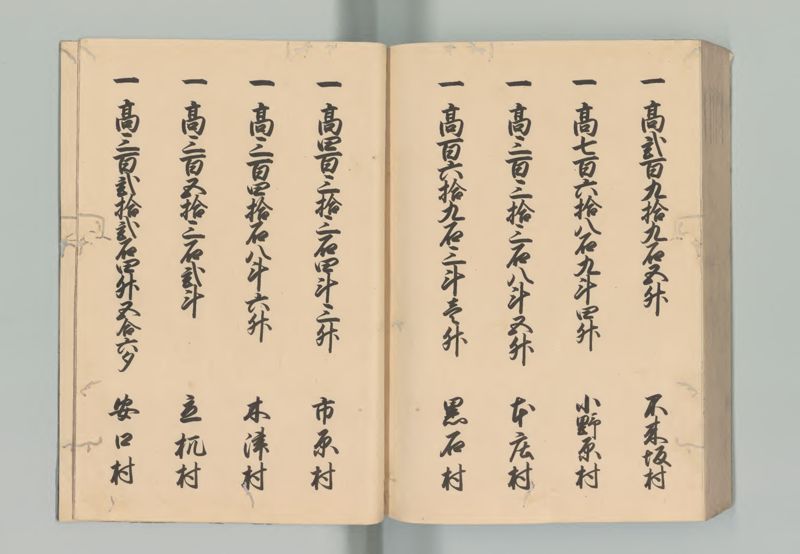 一 高弐百九拾九石五升 不来坂村
一 高七百六拾八石九斗四升 小野原村
一 高三百三拾三石八斗五升 本庄村
一 高百六拾九石三斗壱升 黒石村
一 高四百三拾三石四斗三升 市原村
一 高三百四拾石八斗六升 木津村
一 高三百五拾三石弐斗 立杭村
一 高三百弐拾弐石四升五合六夕 安口村